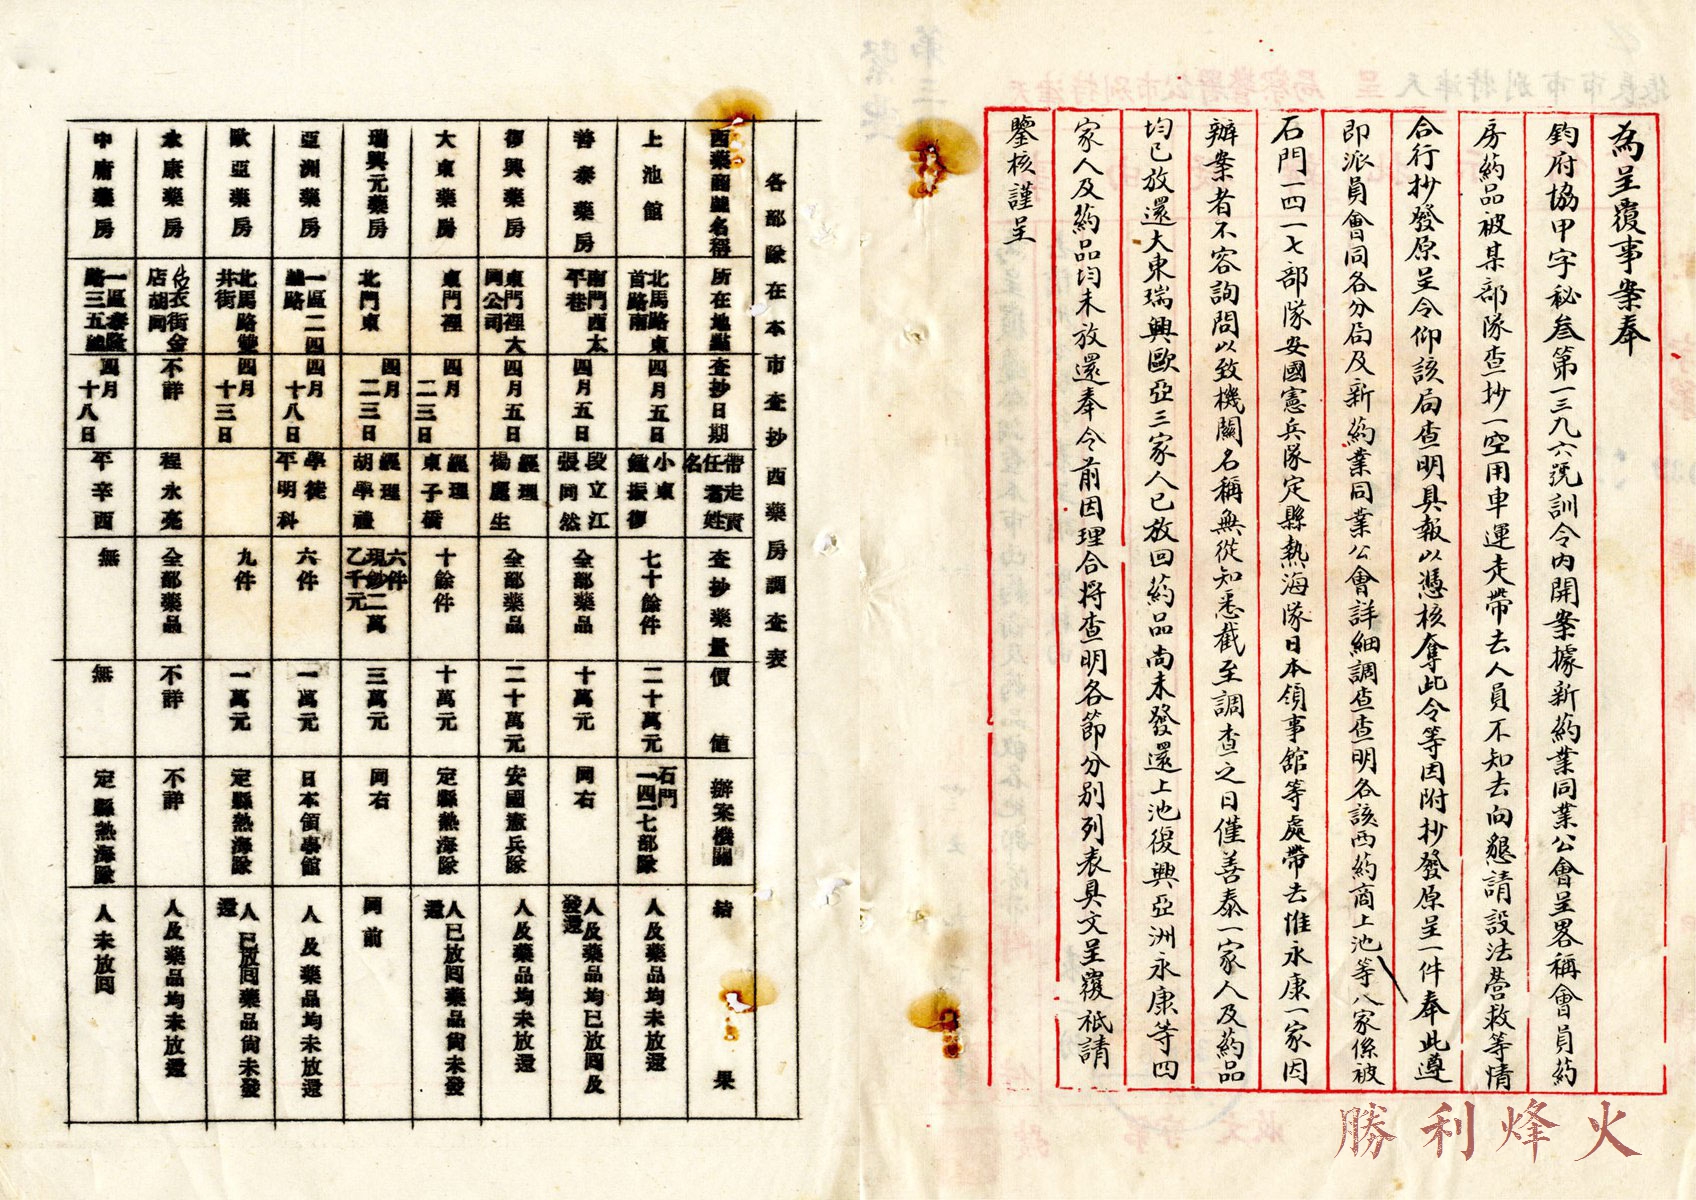 為呈覆事案奉
鈞府協甲字秘叁第一三九六號訓令內開案據新葯業同業公會呈畧稱會員葯
房葯品被某部隊查抄一空用車運走帶去人員不知去向懇請設法營救等情
合行抄發原呈令仰該局查明具報以憑核奪此令等因附抄發原呈一件奉此遵
即派員會同各分局及新葯業同業公會詳細調查查明各該西葯商上池等八家係被
石門一四一七部隊安國憲兵隊定縣熱海隊日本領事館等處帶去惟永康一家因
辦案者不容詢問以致機關名稱無從知悉截至調查之日僅善泰一家人及葯品
均已放還大東瑞興歐亞三家人已放回葯品尚未發還上池復興亞洲永康等四
家人及葯品均未放還奉令前因理合將查明各節分別列表具文呈覆祇請
鑒核謹呈
勝利烽火
各部隊在本市查抄西藥房調查表
西藥商號名稱 所在地點 查抄日期 帶走責任者姓名 查抄藥量 價值 辦案機關 結果
上池館 北馬路東首路南 四月五日 小東鍾振御 七十餘件 二十萬元 石門一四一七部隊 人及藥品均未放還
善泰藥房 南門西太平巷 四月五日 段立江張同然 全部藥品 十萬元 同右 人及藥品均已放回及發還
復興藥房 東門裡大同公司 四月五日 經理楊慶生 全部藥品 二十萬元 安國憲兵隊 人及藥品均未放還
大東藥房 東門裡 四月二三日 經理東子橋 十餘件 十萬元 定縣熱海隊 人已放回藥品尚未發還
瑞興元藥房 北門東 四月二三日 經理胡學禮 六件現鈔二萬乙千元 三萬元 同右 同前
亞洲藥房 一區二四號路 四月十八日 學徒平明科 六件 一萬元 日本領事館 人及藥品均未放還
歐亞藥房 北馬路雙井街 四月十三日 九件 一萬元 定縣熱海隊 人已放回藥品尚未發還
永康藥房 估衣街金店胡同 不詳 程永亮 全部藥品 不詳 不詳 人及藥品均未放還
中庸藥房 一區泰隆路三五號 四月十八日 平辛酉 無 無 定縣熱海隊 人未放回